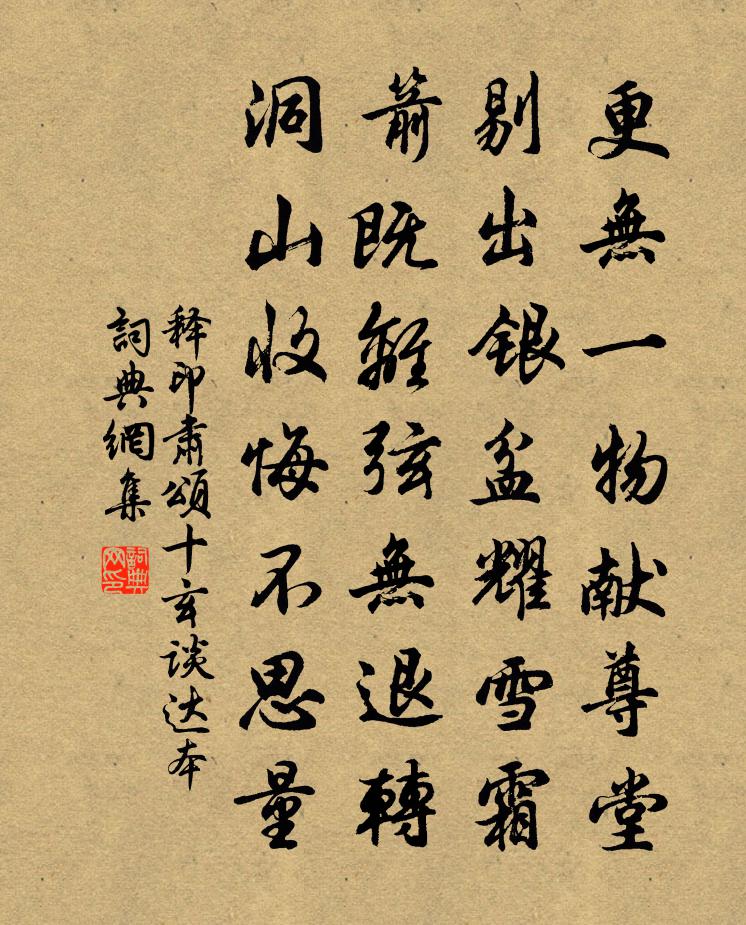 更無一物献尊堂
剔出银盆耀雪霜
箭既離弦無退轉
洞山收悔不思量
释印肃頌十玄談达本
詞典網集
詞典网印